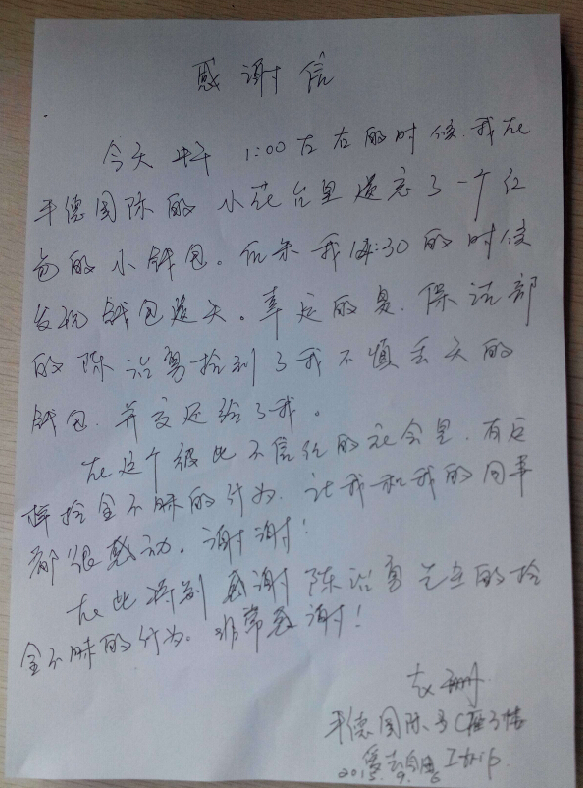 感谢信
今天中午 1:00左右的时候,我在
平德国际的小花台里遗忘了一个红
色的小钱包。后来我4:30的时候
发现钱包遗失。幸运的是,保洁部
的陈治勇捡到了我不慎丢失的
钱包,并交还给了我。
在这个彼此不信任的社会里,有这
样拾金不昧的行为,让我和我的同事
都很感动,谢谢!
在此特别感谢陈治勇先生的拾
金不昧的行为。非常感谢!
平德国际 C座3楼
2015.9.6